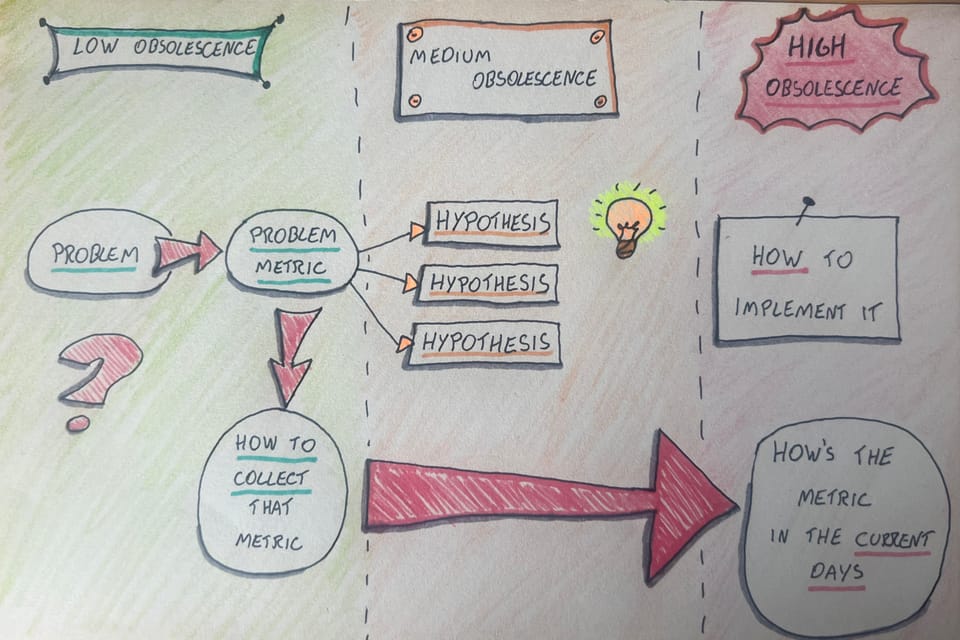 LOW OBSOLESCENCE
MEDIUM
OBSOLESCENCE
HIGH
OBSOLESCENCE
PROBLEM
PROBLEM
METRIC
HYPOTHESIS
HYPOTHESIS
HYPOTHESIS
HOW TO
IMPLEMENT IT
?
HOW TO
COLLECT
THAT
METRIC
HOW'S THE
METRIC
IN THE CURRENT
DAYS